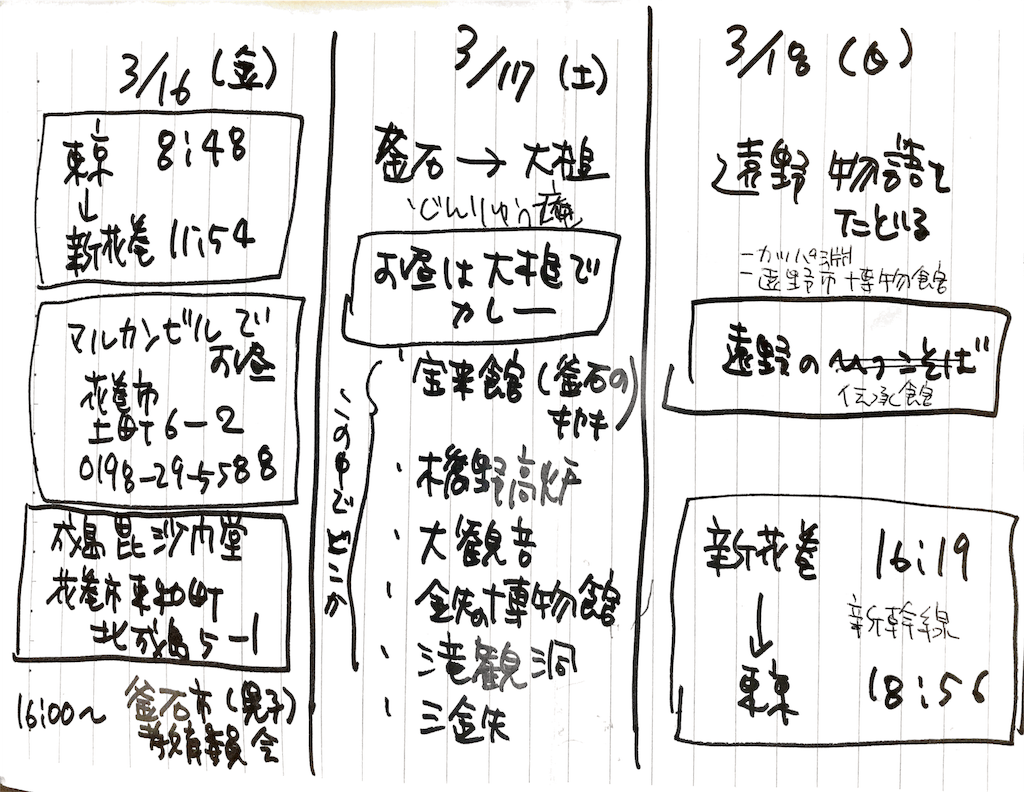 3/16(金)
東京 8:48
↓
新花巻 11:54
マルカンビルで
お昼
花巻市
土町6-2
0198-29-5588
成島毘沙門堂
花巻市東和町
北成島5-1
16:00〜 釜石市(晃子)
教育委員会
3/17(土)
釜石→大槌
お昼は大槌で
カレー
この中でどこか
・宝来館(釜石の
キセキ)
・橋野高炉
・大観音
・鉄の博物館
・滝観洞
・三鉄
3/18(日)
遠野物語を
たどる
-カッパ淵
-遠野市博物館
遠野のひっこそば
伝承館
新花巻 16:19
↓ 新幹線
東京 18:56